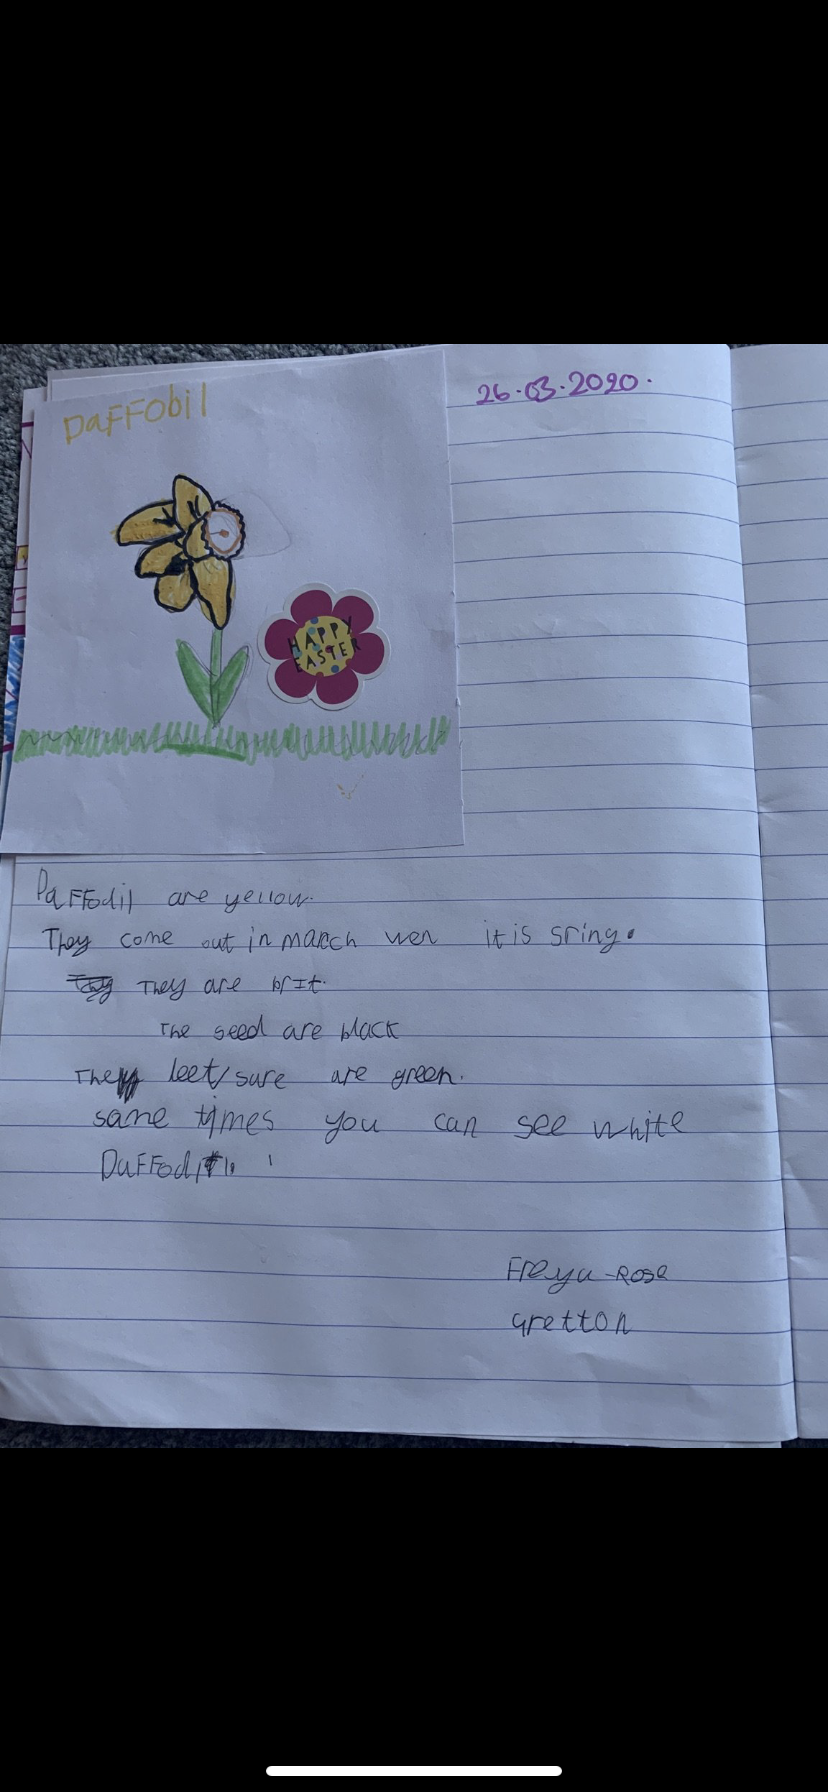 DaFFObil
26.03.2020.
HAPPY
EASTER
DaFFodil are yellow.
They come out in march wen it is sring.
They are brIt.
The seed are black
The leet/sure are green.
same times you can see white
DaFFodil
Freya-Rose
Gretton